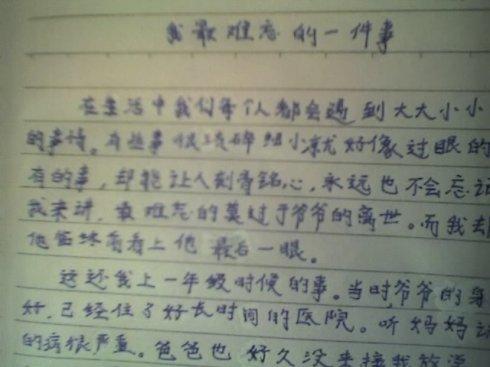 我最难忘的一件事
在生活中我们每个人都会遇到大大小小
的事情。有些事很琐碎细小就好像过眼的
有的事,却能让人刻骨铭心,永远也不会忘记
我来讲,最难忘的莫过于爷爷的离世。而我却
他 看上他最后一眼。
这还我上一年级时候的事。当时爷爷的身
好,已经住了好长时间的医院。听妈妈说
的病很严重。爸爸也好久没来接我放学